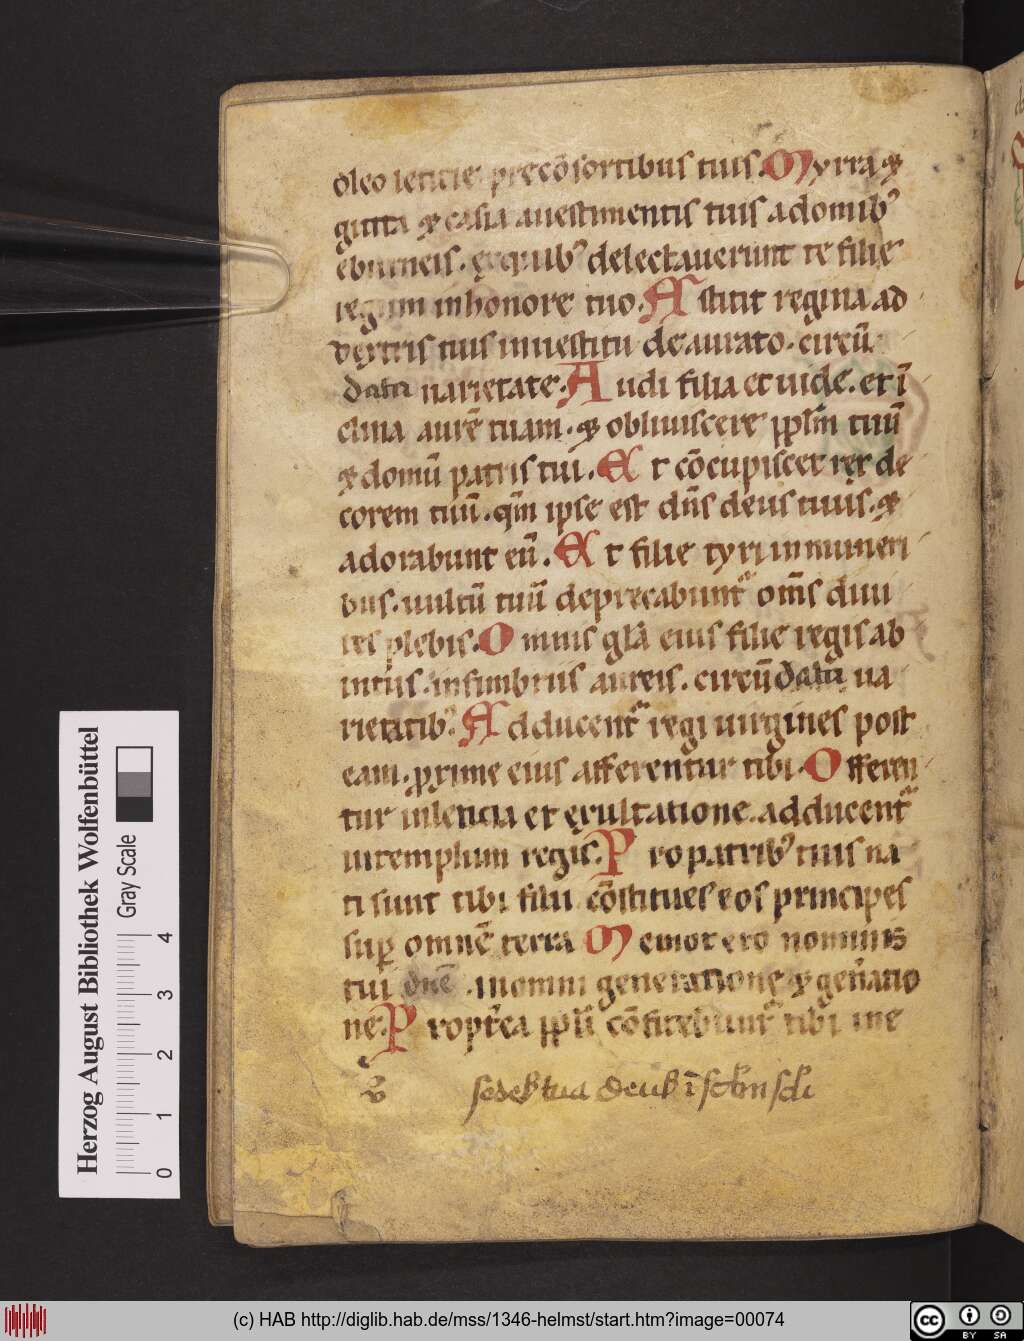 oleo leticie p̄recōsortibus tuis. Myrra &
gutta & casia auestimentis tuis adomibꝰ
eburneis. exquibꝰ delectauerunt te filie
regum inhonore tuo. Astitit regina ad
dextris tuis inuestitu deaurato. circū
data uarietate. Audi filia et uide. et ī
clina aurē tuam. & obliuiscere pplm̄ tuū
& domū patris tui. Et cōcupiscet rex de
corem tuū. qm̄ ipse est dn̄s deus tuus. &
adorabunt eū. Et filie tyri in muneri
bus. uultū tuū deprecabunt᷑ om̄s diui
tes plebis. Omnis glā eius filie regis ab
intus. infimbriis aureis. circūdata ua
rietatibꝰ. Adducent᷑ regi uirgines post
eam. proxime eius afferentur tibi. Offeren
tur inleticia et exultatione. adducent᷑
intemplum regis. Pro patribꝰ tuis na
ti sunt tibi filii cōstitues eos principes
sup̱ omnē terra Memor ero nominis
tui dn̄e. inomni generatione & gen̄atio
ne. Propt̄ea ppli cōfitebunt᷑ tibi ine
v̊ sedes tua deus ī sc̄lm sc̄li
Herzog August Bibliothek Wolfenbüttel
Gray Scale
0 1 2 3 4
(c) HAB http://diglib.hab.de/mss/1346-helmst/start.htm?image=00074
cc BY SA